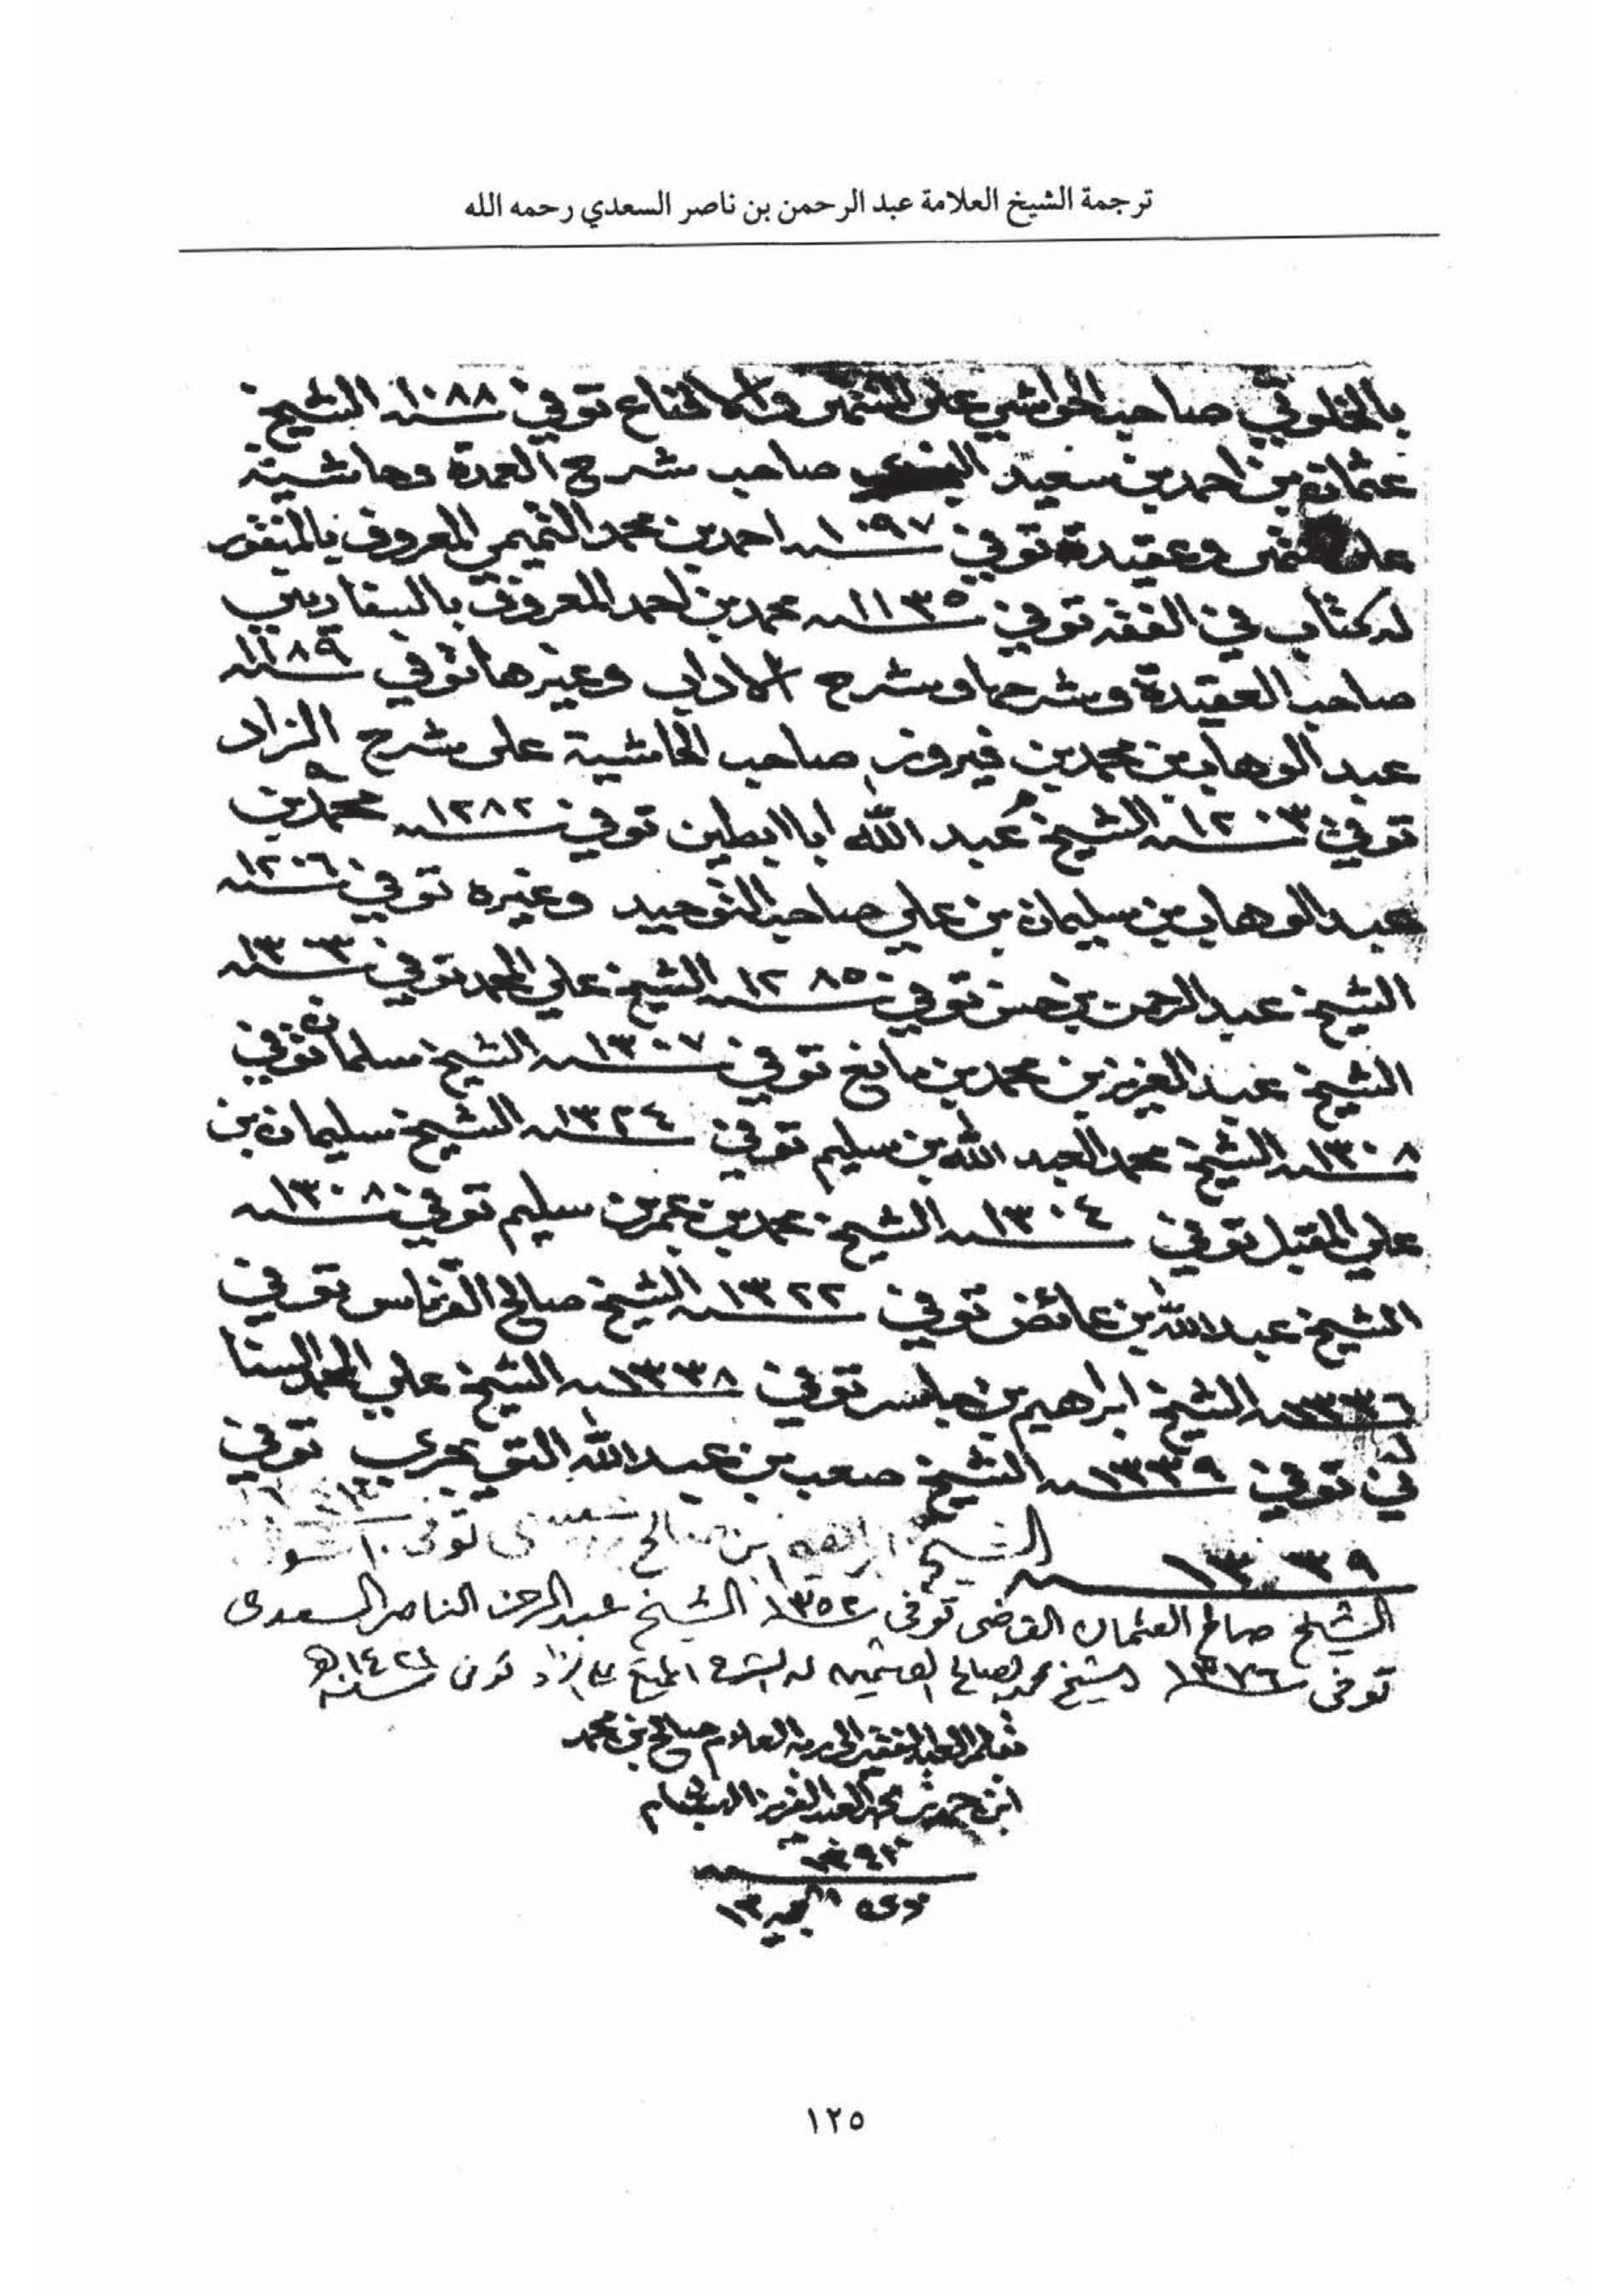 ترجمة الشيخ العلامة عبد الرحمن بن ناصر السعدي رحمه الله
بالخلوتي صاحب الحواشي على المنتهى والاقناع توفي ١٠٨٨ الشيخ
عثمان بن احمد بن سعيد النجدي صاحب شرح العمدة وحاشية
على المنتهى وعقيدة توفي ١٠٩٧ احمد بن محمد التميمي المعروف بالمنقور
له كتاب في الفقه توفي ١١٣٥ محمد بن احمد المعروف بالسفاريني
صاحب العقيدة وشرحها وشرح الاداب وغيرها توفي ١١٨٩
عبد الوهاب بن محمد بن فيروز صاحب الحاشية على شرح الزاد
توفي ١٢٠٣ الشيخ عبد الله ابا ابطين توفي ١٢٨٢ محمد بن
عبد الوهاب بن سليمان بن علي صاحب التوحيد وغيره توفي ١٢٠٦
الشيخ عبد الرحمن بن حسن توفي ١٢٨٥ الشيخ علي المحمد توفي ١٣٠٣
الشيخ عبد العزيز بن محمد بن مانع توفي ١٣٠٧ الشيخ سلمان توفي
١٣٠٨ الشيخ محمد العبد الله بن سليم توفي ١٣٢٤ الشيخ سليمان بن
علي المقبل توفي ١٣٠٤ الشيخ محمد بن عمر بن سليم توفي ١٣٠٨
الشيخ عبد الله بن عائض توفي ١٣٢٢ الشيخ صالح القرناس توفي
١٣٣٦ الشيخ ابراهيم بن جاسر توفي ١٣٣٨ الشيخ علي المحمد السنا
ني توفي ١٣٣٩ الشيخ صعب بن عبد الله التويجري توفي
١٣٣٩ الشيخ ابراهيم بن صالح بن عيسى توفى
الشيخ صالح العثمان القاضي توفى ١٣٥٢ الشيخ عبد الرحمن الناصر السعدي
توفى ١٣٧٦ الشيخ محمد الصالح العثيمين له الشرح الممتع على الزاد توفى سنة ١٤٢١هـ
صالح بن محمد
ابن حمد بن محمد العبد العزيز البسام
١٢٥